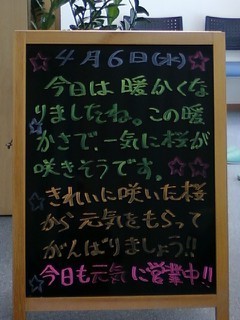 4月6日(水)
今日は暖かくな
りましたね。この暖
かさで、一気に桜が
咲きそうです。
きれいに咲いた桜
から元気をもらって
がんばりましょう!!
今日も元気に営業中!!